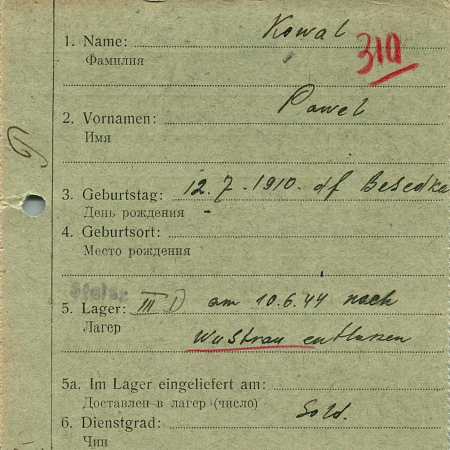 Kowal
1. Name:
310
Фамилия
Pawel
2. Vornamen:
Имя
3. Geburtstag: 12.7.1910. df Besedka
День рождения
4. Geburtsort:
Место рождения
Stalag
5. Lager: III D am 10.6.44 nach
Лагер
Wustrau entlassen
5a. Im Lager eingeliefert am:
Доставлен в лагер (число)
6. Dienstgrad: Sold.
Чин